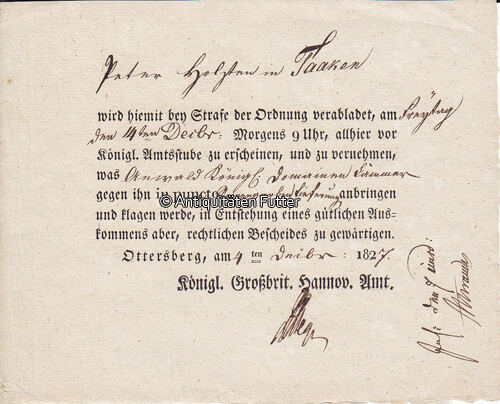 Peter Holsten in Taaken
wird hiemit bey Strafe der Ordnung verabladet, am Freytag
den 14ten Decbr: Morgens 9 Uhr, allhier vor
Königl. Amtsstube zu erscheinen, und zu vernehmen,
was Anwald Königl. Domainen Cammer
gegen ihn in puncto anbringen
© Antiquitäten Futter
und klagen werde, in Entstehung eines gütlichen Aus-
kommens aber, rechtlichen Bescheides zu gewärtigen.
Ottersberg, am 4 ten Decbr: 1827.
Königl. Großbrit. Hannov. Amt.